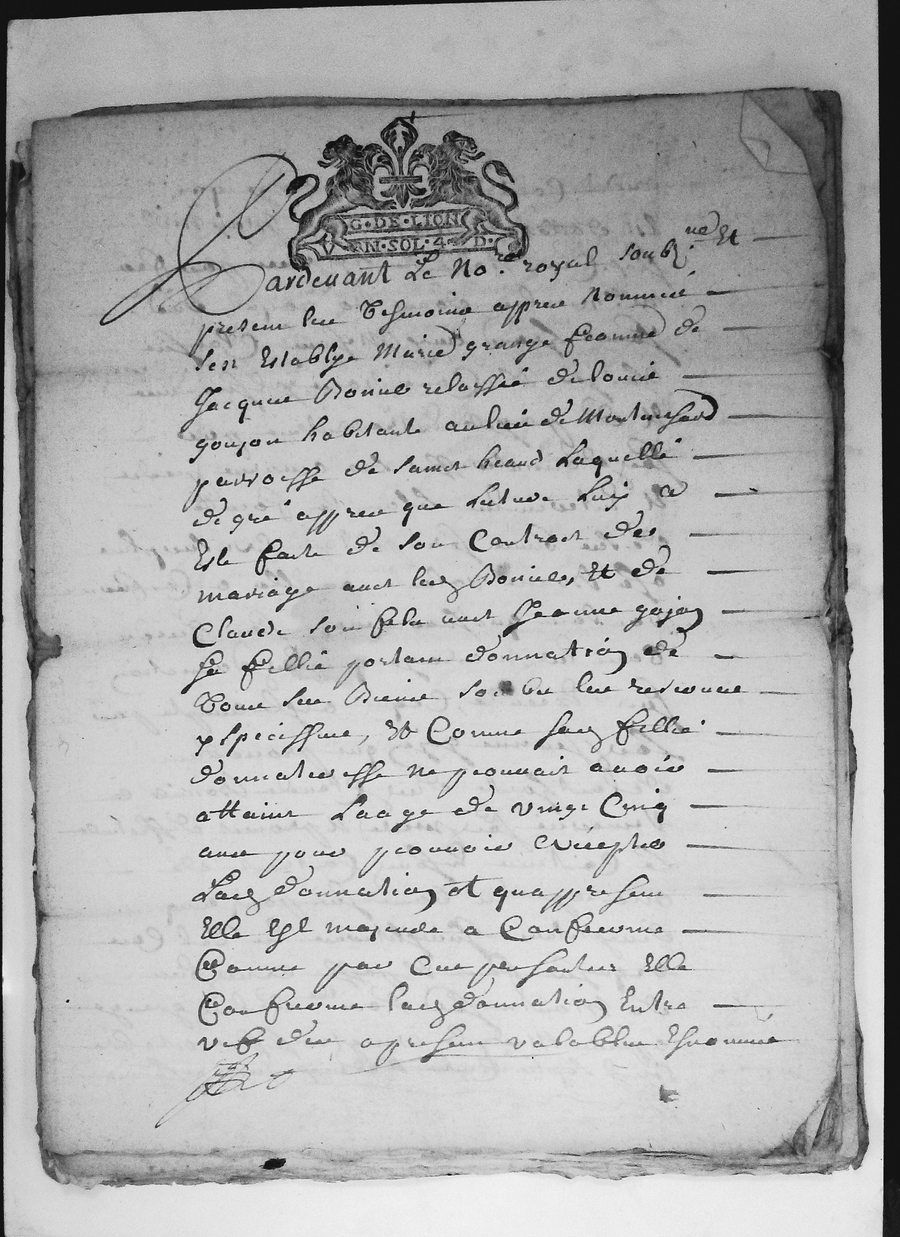 G·DE·LION
VN·SOL·4·D·
Pardevant Le No.re royal soubz.né Et
presem les Tesmoins appres Nommés
sen Establye Marie grange femme de
Jacques Bonies relaissée de Louis
goujon habitante au lieu de
parroisse de sainct heand Laquelle
de gré appres que Lecture Luy a
Este faite de son Contract de
mariage avec led Bonies, Et de
Claude son fils avec Jeanne gojon
sa fillie portam donnation de
Tous ses Biens soubz les reserves
y specissiees, Et Comme sad fillie
donnateresse ne pouvait avoir
attaint Laage de vingt Cinq
ans pour pouvoir accepter
Lad donnation et qu'appresem
Elle Est majeude a Confirme
Comme par Ces presantes Elle
Confirme lad donnation Entre
vifs des apresem valablem